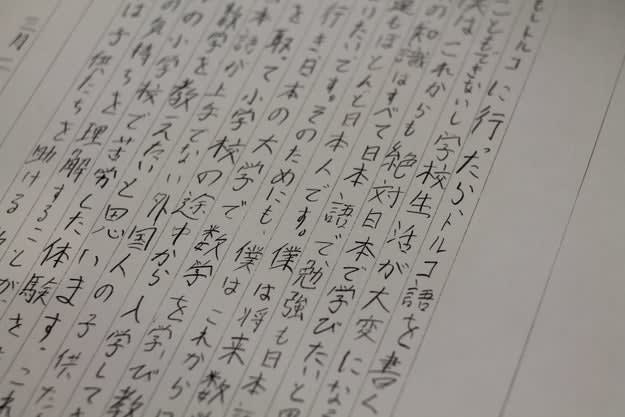 もしトルコに行ったら、トルコ語を書く
こともできないし学校生活が大変になる
僕はこれからも絶対日本で学びたいと思
の知識はすべて日本語で勉強も日本
もほとんど日本人です。僕は将来数
りたいです。そのためにも、僕はこれから
行き日本の大学で数学を学び教
を取って小学校の途中から入学してき
本語が上手でない外国人の子供た
数学を教えたいと思います。
の小学校で苦労した体験
気持ちを理解することが
は子供たちを助ける
三月